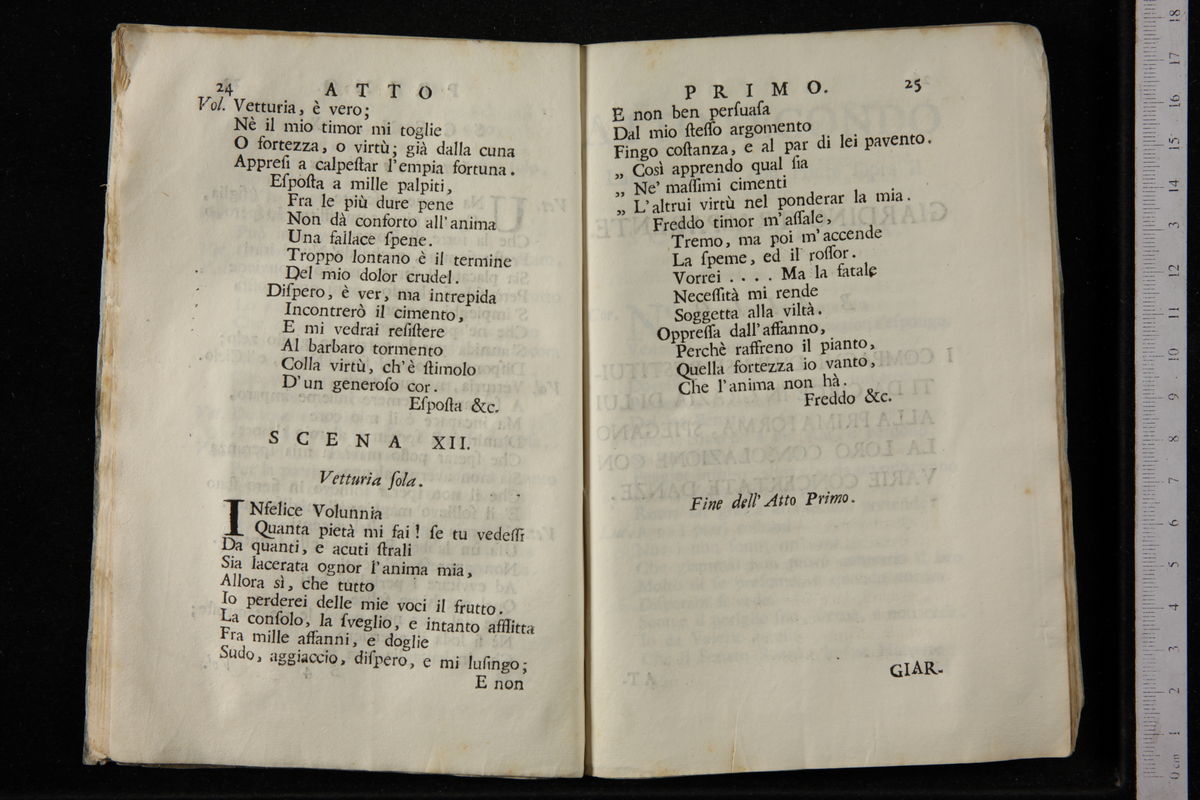 24 ATTO
Vol. Vetturia, è vero;
Nè il mio timor mi toglie
O fortezza, o virtù; già dalla cuna
Appreſi a calpeſtar l'empia fortuna.
Eſpoſta a mille palpiti,
Fra le più dure pene
Non dà conforto all'anima
Una fallace ſpene.
Troppo lontano è il termine
Del mio dolor crudel.
Diſpero, è ver, ma intrepida
Incontrerò il cimento,
E mi vedrai reſiſtere
Al barbaro tormento
Colla virtù, ch'è ſtimolo
D'un generoſo cor.
Eſpoſta &c.
SCENA XII.
Vetturia ſola.
INfelice Volunnia
Quanta pietà mi fai! ſe tu vedeſſi
Da quanti, e acuti ſtrali
Sia lacerata ognor l'anima mia,
Allora sì, che tutto
Io perderei delle mie voci il frutto.
La conſolo, la ſveglio, e intanto afflitta
Fra mille affanni, e doglie
Sudo, aggiaccio, diſpero, e mi luſingo;
E non
PRIMO. 25
E non ben perſuaſa
Dal mio ſteſſo argomento
Fingo coſtanza, e al par di lei pavento.
„ Così apprendo qual ſia
„ Ne' maſſimi cimenti
„ L'altrui virtù nel ponderar la mia.
Freddo timor m'aſſale,
Tremo, ma poi m'accende
La ſpeme, ed il roſſor.
Vorrei .... Ma la fatale
Neceſſità mi rende
Soggetta alla viltà.
Oppreſſa dall'affanno,
Perchè raffreno il pianto,
Quella fortezza io vanto,
Che l'anima non hà.
Freddo &c.
Fine dell' Atto Primo.
GIAR-
0 cm 1 2 3 4 5 6 7 8 9 10 11 12 13 14 15 16 17 18